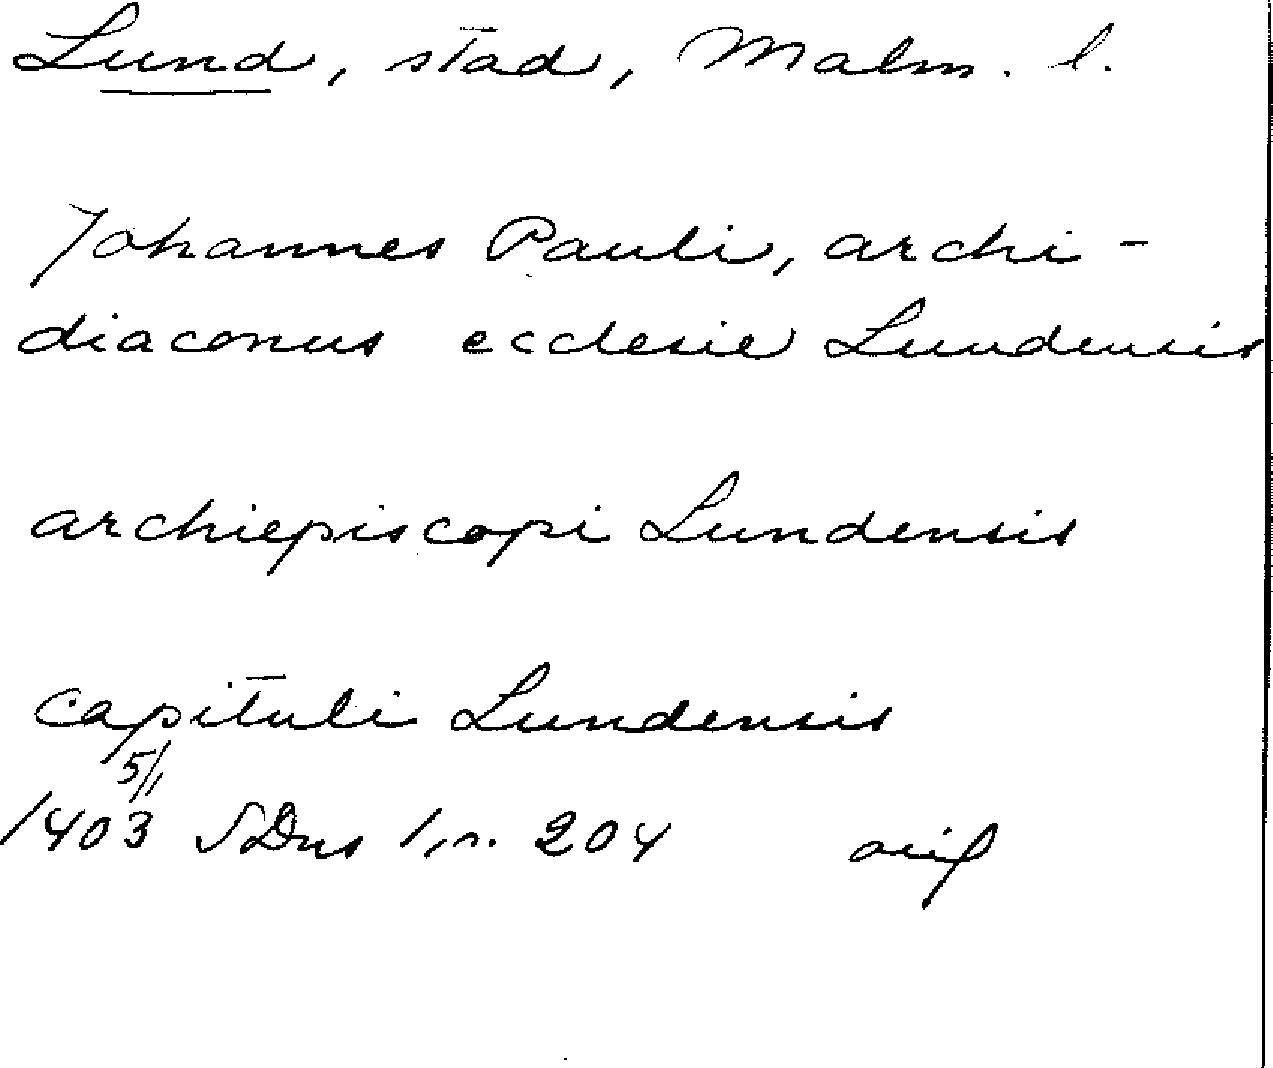 Lund, stad, Malm. l.
Johannes Pauli, archi-
diaconus ecclesie Lundensis
archiepiscopi Lundensis
capituli Lundensis
5/11
1403 SDns 1, n. 204